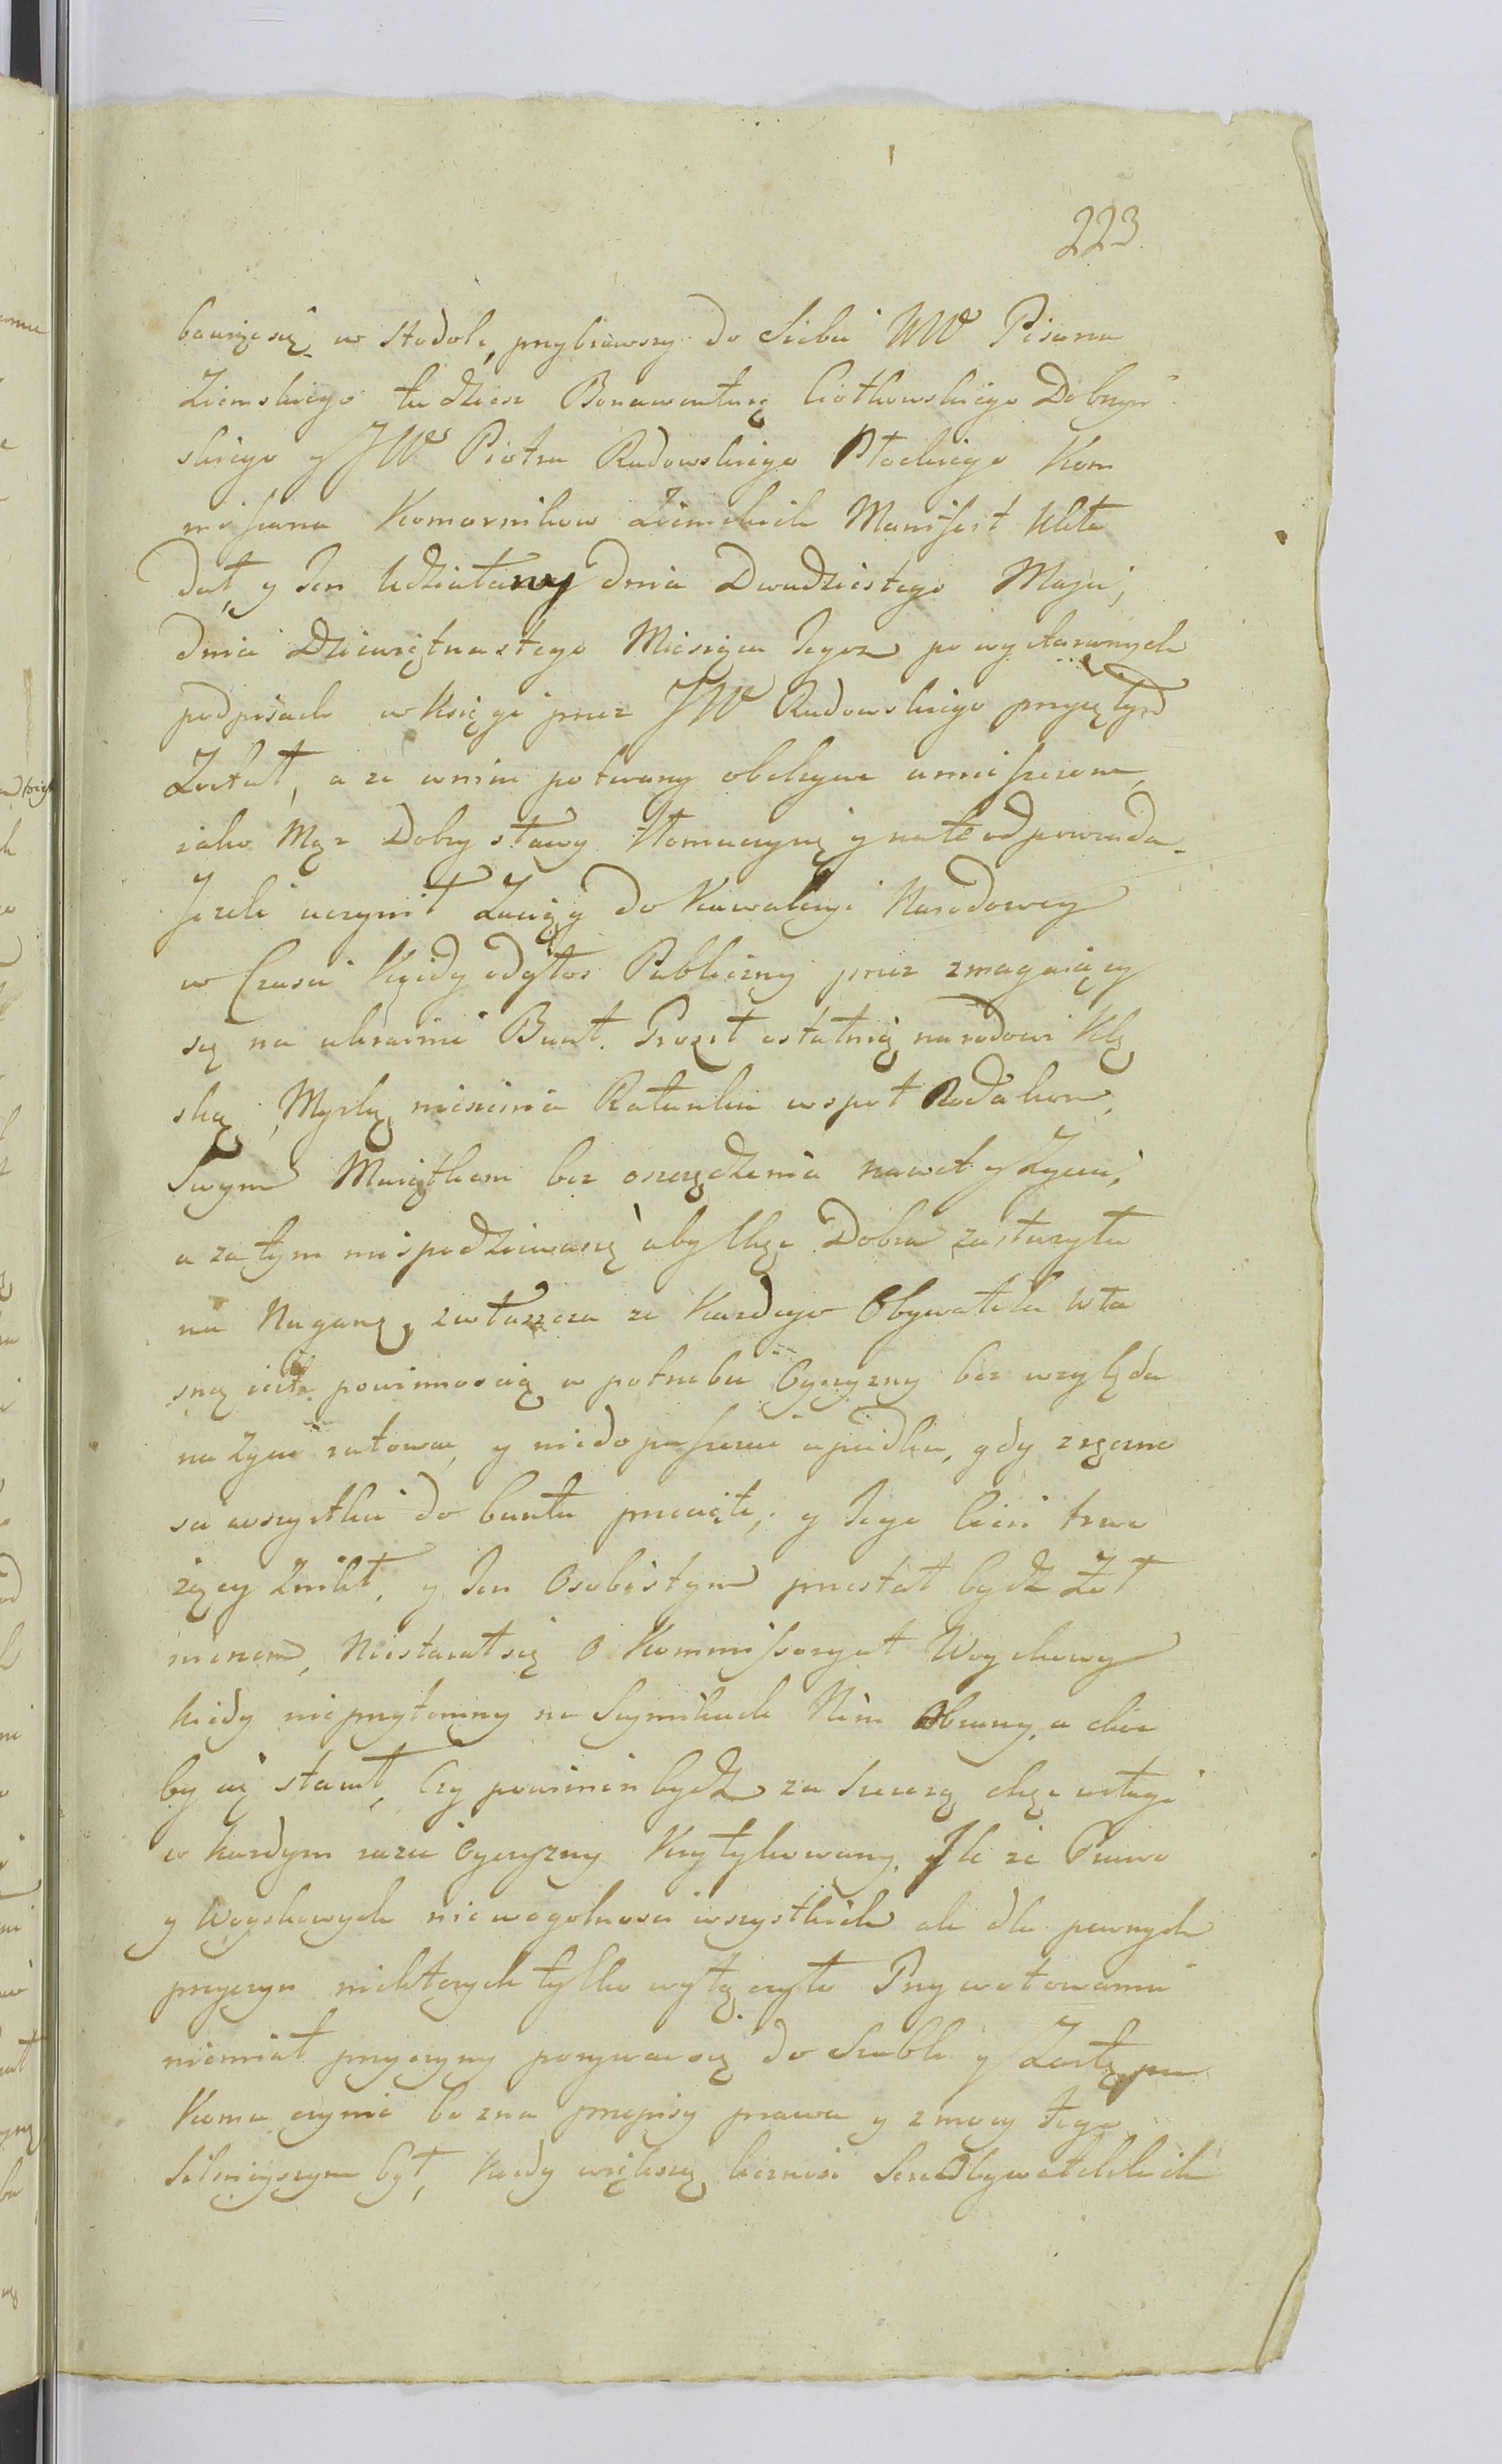 223
bawiąc się w stodole, przybrawszy do Siebie WW Pisarza
Ziemskiego tudziesz Bonawenturę Ciołkowskiego Dobrzyń
skiego y JWo Piotra Rudowskiego Płockiego Kom
missarza Komorników Ziemskich Manifest Ukła
dał, y Ten Udziałany Dnia Dwudziestego Maja,
dnia Dziewiętnastego Miesiąca Tegoz po wytartych
podpisach w Księgi przez JW Rudowskiego przyiętym
Został, a ze w nim potwarzy obelżywe umieszczone,
iako Mąz Dobry sławy tłomaczy się y na te odpowiada.
Jezeli uczynił Zaciąg do Kawaleryi Narodowey
w Czasie Kiedy odgłos Publiczny przez zmagaiący
się na ukrainie Bunt. Groził ostatnią narodowi Klę
ską, Myslą niesienia Ratunku wspoł Rodakom,
Swym Maiątkiem bez oszczędzenia nawet y Zycia,
a zatym niespodziewa się aby tkę Dobra zasłuzyła
na Naganę, zwłaszcza ze Kazdego Obywatela wła
sną iest powinnoscią w potrzebie Oyczyzny bez względu
na zycie ratować, y niedopuszczać upadku, gdy zręczno
sci wszystkie do buntu przecięte, y Jego Cień trwo
zący Znikł, y Ten Osobistym przestał bydz Zoł
nierzem, Niestarał się o Kommissoryat Woyskowy
kiedy nieprzytomny na Seymikach Nim Obrany, a choć
by się starał, Czy powinien bydz za szczerą chęć usługi
w kazdym razie Oyczyzny Krytykowany. Ile ze Prawo
y Woyskowych nie w ogolnosci wszystkich ale dla pewnych
przyczyn niektorych tylko wyłączyło Prywatowania
niemiał przyczyny porywać się do Szabli y Zastępu
Komu czynić bo zna przepisy prawa y z mocy tego
Silnieyszym był, Kiedy większą licznosć Serc Obywatelskich